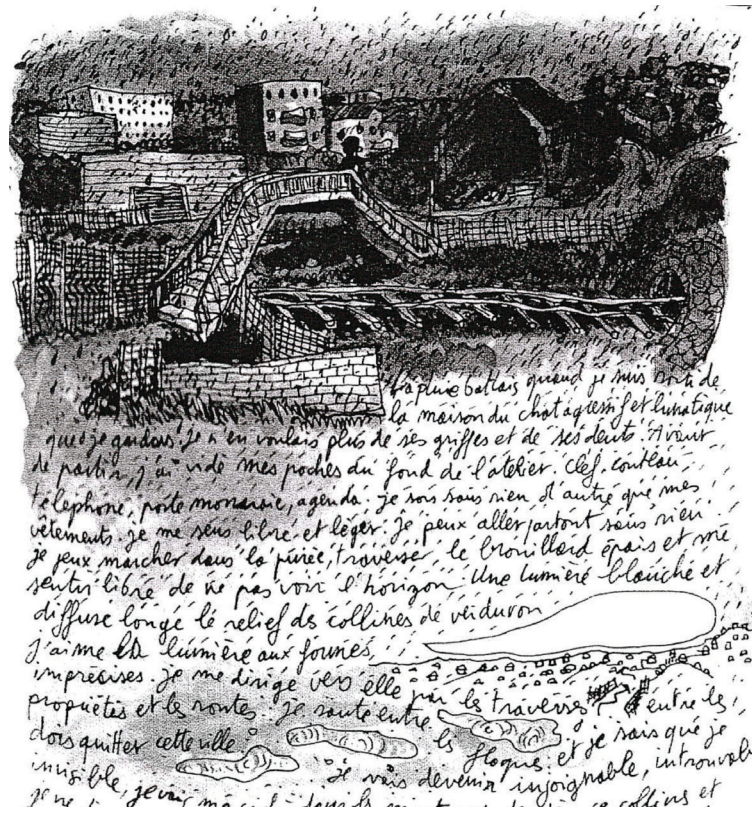 La pluie battais quand je suis sorti de
la maison du chat agressif et lunatique
que je gardais. Je n'en voulais plus de ses griffes et de ses dents. Avant
de partir, j'ai vidé mes poches du fond de l'atelier. Clef, couteau,
téléphone, porte monnaie, agenda. je sors sans rien d'autre que mes
vêtements. je me sens libre et léger. Je peux aller partout sans rien
je peux marcher dans la purée, traverser le brouillard épais et me
sentir libre de ne pas voir l'horizon. Une lumière blanche et
diffuse longe le relief des collines de verduron
j'aime la lumière aux formes
imprécises. je me dirige vers elle par les traverses entre les
propriétés et les routes. Je saute entre les flaques et je sais que je
dois quitter cette ville.
Je vais devenir injoignable, introuvable
invisible, je vais dans collines et